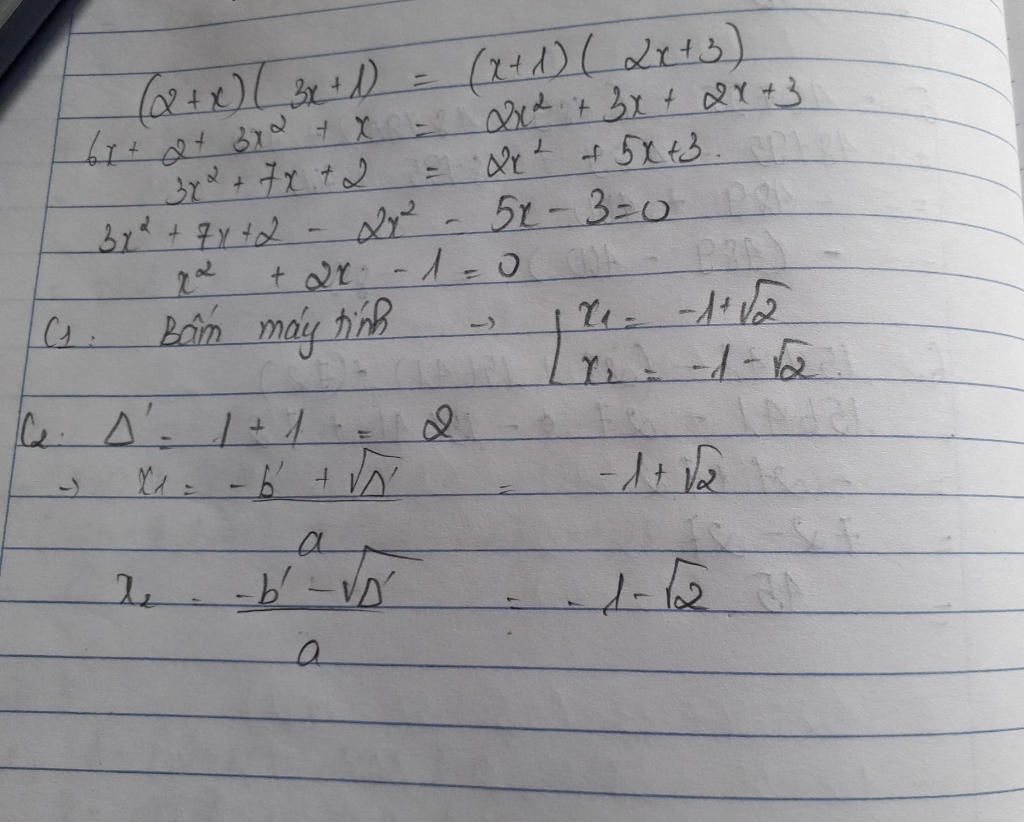 (2+x)( 3x+1) = (x+1)( 2x+3)
6x+ 2+ 3x² + x = 2x² + 3x + 2x+3
3x² + 7x +2 = 2x² + 5x+3.
3x² + 7x+2 - 2x² - 5x - 3=0
x² + 2x - 1 = 0
C1. Bấm máy tính → [ x1 = -1+√2
x2 = -1 - √2
C2. Δ' = 1 + 1 = 2
→ x1 = -b' + √Δ' / a = -1+√2
x2 = -b' - √Δ' / a = -1-√2